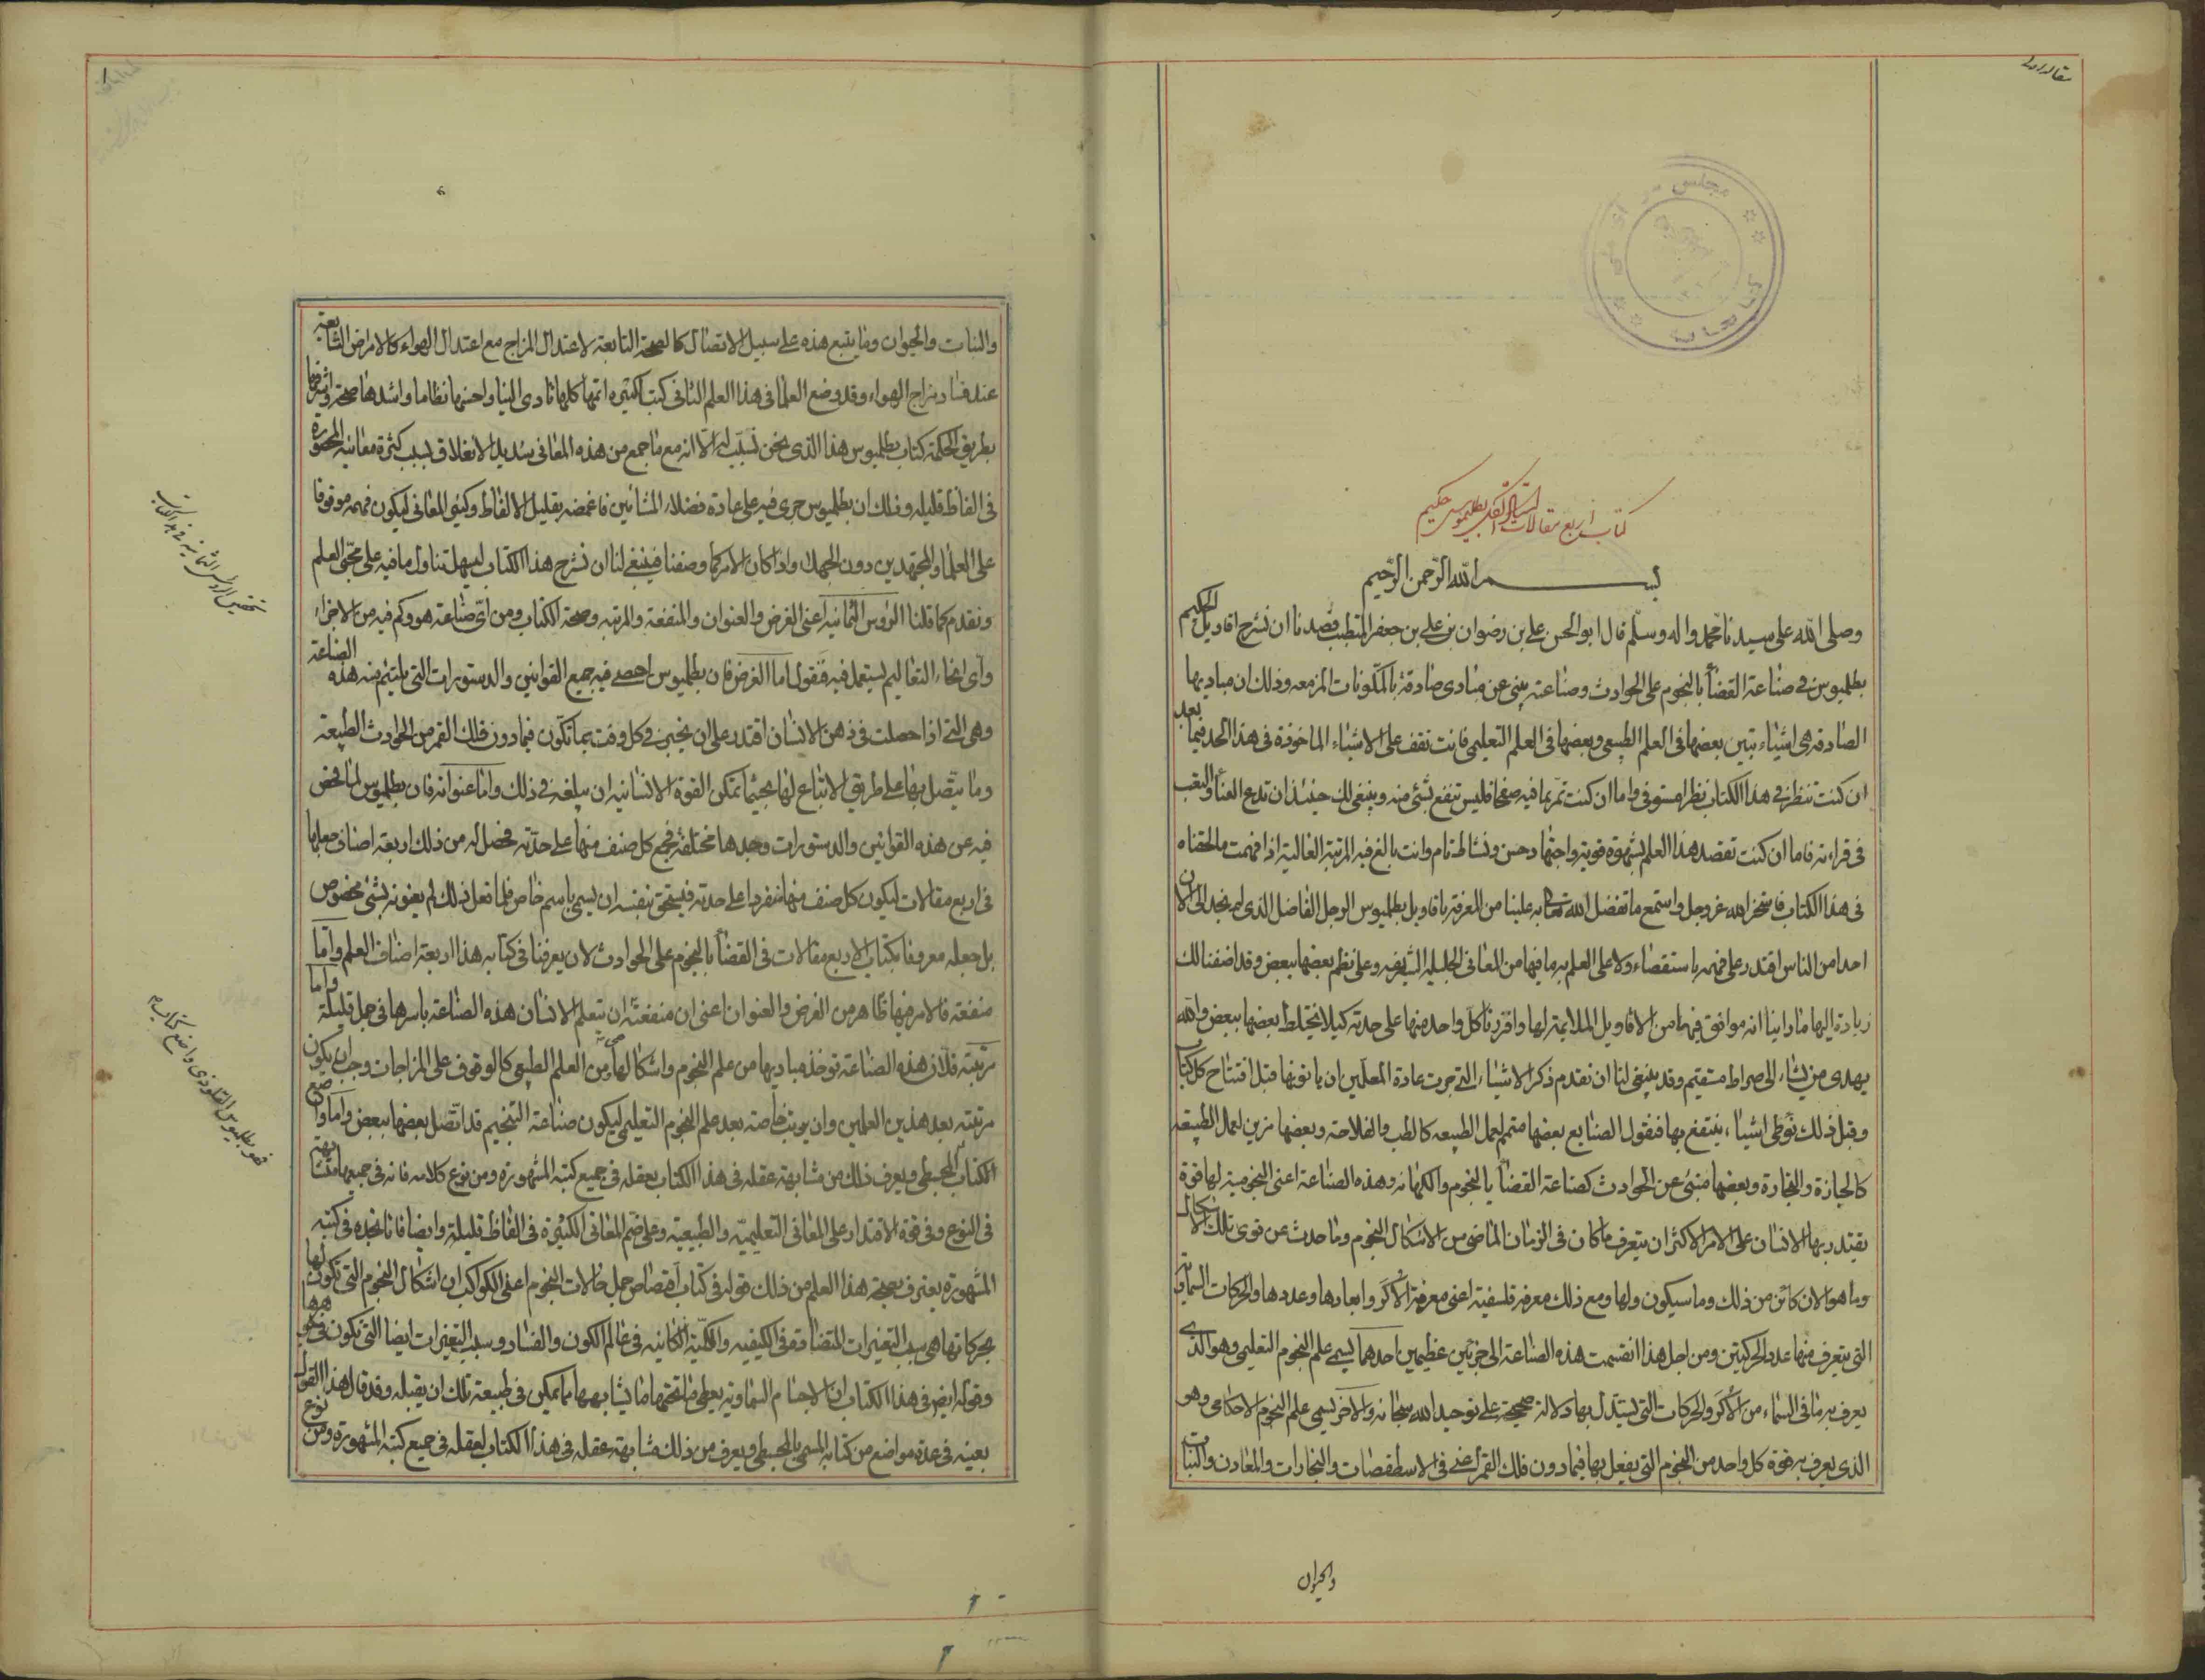 مقاله اولی
مجلس شورای ملی
کتابخانه
کتاب اربع مقالات لبطلیموس حکیم
بسم الله الرّحمن الرّحیم
وصلی الله علی سیدنا محمد واله وسلّم قال ابو الحسن علی بن رضوان بن علی بن جعفر المتطبب قصدنا ان نشرح اقاویل الحکیم
بطلمیوس فی صناعة القضاء بالنجوم علی الحوادث وصناعته ینبئ عن مبادی صادقة بالمکونات المزمعه وذلک ان مبادیها
الصادقه هی اشیاء تبین بعضها فی العلم الطبیعی وبعضها فی العلم التعلیمی فانت تقف علی الاشیاء الماخوذة فی هذا الحد فیما بعد
ان کنت تنظر فی هذا الکتاب نظرا مستوفی واما ان کنت تمر بما فیه صفحا فلیس تنتفع بشئ منه وینبغی لک حینئذ ان تدع العنا والتعب
فی قراءته فاما ان کنت تقصد هذا العلم بشهوة قویة واجتهاد حسن ونشاط تام وانت بالغ فیه المرتبة العالیة اذا فهمت ما لحقناه
فی هذا الکتاب فاستخر الله عز وجل واستمع ما تفضل الله تعالی به علینا من المعرفة باقاویل بطلمیوس الرجل الفاضل الذی لم نجد الی الان
احدا من الناس اقتدر علی فهمه باستقصاء ولا علی العلم به بما فیها من المعانی الجلیله الشریفه وعلی نظم بعضها ببعض وقد اضفنا لک
زیادة الیها ما راینا انه موافق فیها من الاقاویل الملایمة لها وافردنا کل واحد منها علی حدته کیلا یختلط بعضها ببعض والله
یهدی من یشاء الی صراط مستقیم وقد ینبغی لنا ان نقدم ذکر الاشیاء التی جرت عادة المعلمین ان یاتوا بها قبل افتتاح کل کتاب
وقبل ذلک نوطی اشیاء ینتفع بها فنقول الصنایع بعضها متمم لعمل الطبیعه کالطب والفلاحة وبعضها مزین لعمل الطبیعة
کالحیازة والنجارة وبعضها منبئ عن الحوادث کصناعة القضاء بالنجوم والکهانه وهذه الصناعة اعنی النجومیة لها قوة
یقتدر بها الانسان علی الامر الاکثر ان یتعرف ما کان فی الزمان الماضی من الاشکال النجوم وما حدث عن قوی تلک الاشکال
وما هو الان کائن من ذلک وما سیکون ولها ومع ذلک معرفة فلسفیة اعنی معرفة الاکر وابعادها وعددها والحرکات السماویة
التی یتعرف منها عدد الحرکتین ومن اجل هذا انقسمت هذه الصناعة الی جزئین عظیمین احدهما یسمی علم النجوم التعلیمی وهو الذی
یعرف به ما فی السماء من الاکر والحرکات التی یستدل بها دلالة صحیحة علی توحید الله سبحانه والاخر یسمی علم النجوم الاحکامی وهو
الذی یعرف به قوة کل واحد من النجوم التی یفعل بها فیما دون فلک القمر اعنی فی الاسطقصات والبخارات والمعادن والنبات
والحیوان
والنبات والحیوان وما یتبع هذه علی سبیل الاتصال کالصحة التابعة لاعتدال المزاج مع اعتدال الهواء کالامراض التابعة
عند فساد مزاج الهواء وقد وضع العلما فی هذا العلم الثانی کتبا کثیره اتمها کلها تادی الینا واحسنها نظاما واشدها صحة واشرفها
بطریق الحکمة کتاب بطلمیوس هذا الذی نحن بسبیله الا انه مع ما جمع من هذه المعانی شدید الانغلاق بسبب کثرة معانیه المحصورة
فی الفاظ قلیله وذلک ان بطلمیوس جری فیه علی عادة فضلاء المشائین فاغمضه بقلیل الالفاظ وکثیر المعانی لیکون فهمه موقوفا
علی العلما والمجتهدین دون الجهلا واذا کان الامر کما وصفنا فینبغی لنا ان نشرح هذا الکتاب لیسهل تناول ما فیه علی محبّی العلم
ونقدم کما قلنا الرؤس الثمانیه اعنی الغرض والعنوان والمنفعة والمرتبه وصحة الکتاب ومن ای صناعة هو وکم فیه من الاجزاء
وای انحاء التعالیم یستعمل فیه فنقول اما الغرض فان بطلمیوس احصی فیه جمیع القوانین والدستورات التی یلتئم منه هذه الصناعة
وهی التی اذا حصلت فی ذهن الانسان اقتدر علی ان یخبر فی کل وقت بما تکون فیما دون فلک القمر من الحوادث الطبیعة
وما یتصل بها علی طریق الاتباع لها بحیثما تمکن القوة الانسانیه ان یبلغه فی ذلک واما عنوانه فان بطلمیوس لما فحص
فیه عن هذه القوانین والدستورات وجدها مختلفة فجمع کل صنف منها علی حدّته فحصل له من ذلک اربعة اصناف جعلها
فی اربع مقالات لیکون کل صنف منها منفردا علی حدته فیستحق بنفسه ان یسمی باسم خاص فلما فعل ذلک لم یعنونه بشئ مخصوص
بل جعله معروفا بکتاب الاربع مقالات فی القضاء بالنجوم علی الحوادث لان یعرفنا فی کتابه هذا اربعة اصناف العلم واما
منفعته فالامر فیها ظاهر من الغرض والعنوان اعنی ان منفعته ان یتعلم الانسان هذه الصناعة باسرها فی جمل قلیلة واما
مرتبته فلان هذه الصناعة توخذ مبادیها من علم النجوم واشکالها ومن العلم الطبیعی کالوقوف علی المزاجات وجب ان یکون
مرتبته بعد هذین العلمین وان یرتب خاصه بعد علم النجوم التعلیمی لیکون صناعة التنجیم قد اتصل بعضها ببعض واما واضع
الکتاب المجسطی ویعرف ذلک من مشابهة عقله فی هذا الکتاب بعقله فی جمیع کتبه المشهورة ومن نوع کلامه فانه فی جمیعها متشابهة
فی النوع وفی قوة الاقتدار علی المعانی التعلیمیّة والطبیعیة وعلی ضم المعانی الکثیرة فی الفاظ قلیلة وایضا فانا نجده فی کتبه
المشهورة یعترف بصحة هذا العلم من ذلک قوله فی کتاب اقتصاص جمل حالات النجوم اعنی الکواکب ان اشکال النجوم التی تکون لها
بحرکاتها هی سبب التغیرات المتضادة فی الکیفیه والکمیة الکائنه فی عالم الکون والفساد وسبب التغیرات ایضا التی تکون
وقوله ایض فی هذا الکتاب ان الاجسام السماویة یعطی ما تحتها ما یشابهها ما یمکن فی طبیعة تلک ان یقبله وقد قال هذا القول
بعینه فی عدة مواضع من کتابه المسمی بالمجسطی ویعرف من ذلک مشابهة عقله فی هذا الکتاب لعقله فی جمیع کتبه المشهورة ومن نوع
فهو بطلمیوس القلوذی واضع کتاب